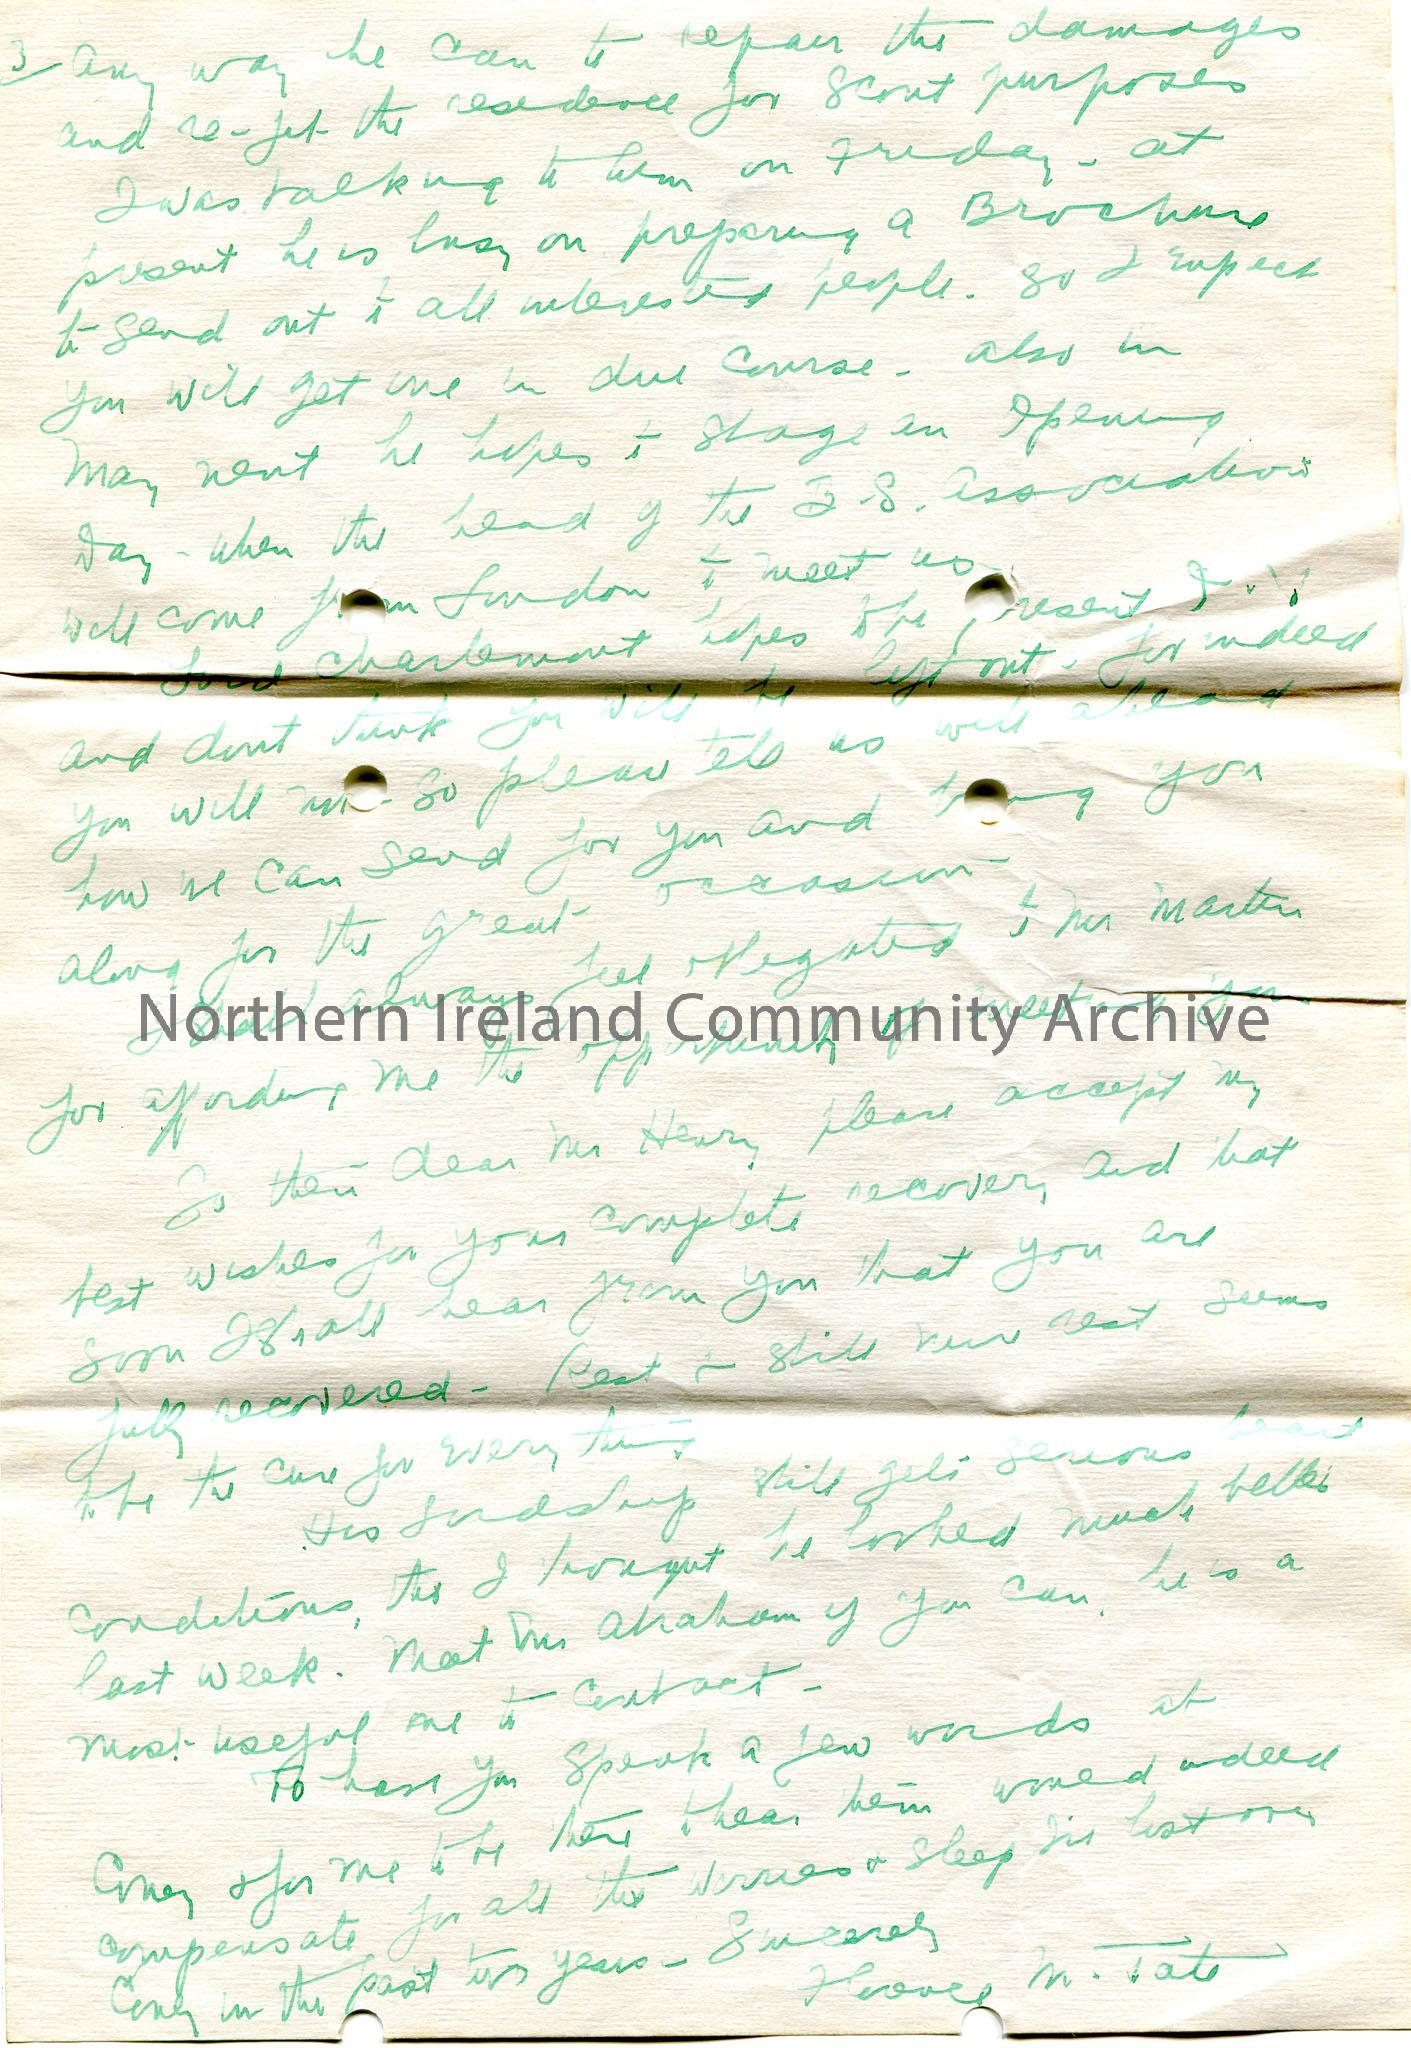 3
any way he can to repair the damages
and re-fit the residence for Scout purposes
I was talking to him on Friday - at
present he is busy on preparing a Brochure
to send out to all interested people. So I expect
you will get one in due course - also in
May next he hopes to stage an Opening
Day - when the head of the B.S. Association
will come from London to meet us
Lord Charlemont hopes to be present
and dont think you will be left out - for indeed
you will not - so please tell us well ahead
how we can send for you and bring you
along for the great occasion
I shall always feel obligated to Mr Martin
Northern Ireland Community Archive
for affording me the opportunity of meeting you.
So then dear Mr Henry please accept my
best wishes for your complete recovery and that
soon I shall hear from you that you are
fully recovered - Rest & still more rest seems
to be the cure for everything
His Lordship still gets serious heart
conditions, tho I thought he looked much better
last week. Meet Mr Abraham if you can, he is a
most useful one to contact -
To have you speak a few words at
Coney & for me to be there to hear them would indeed
compensate for all the worries & sleep I've lost over
Coney in the past two years - Sincerely
Florence M. Tate